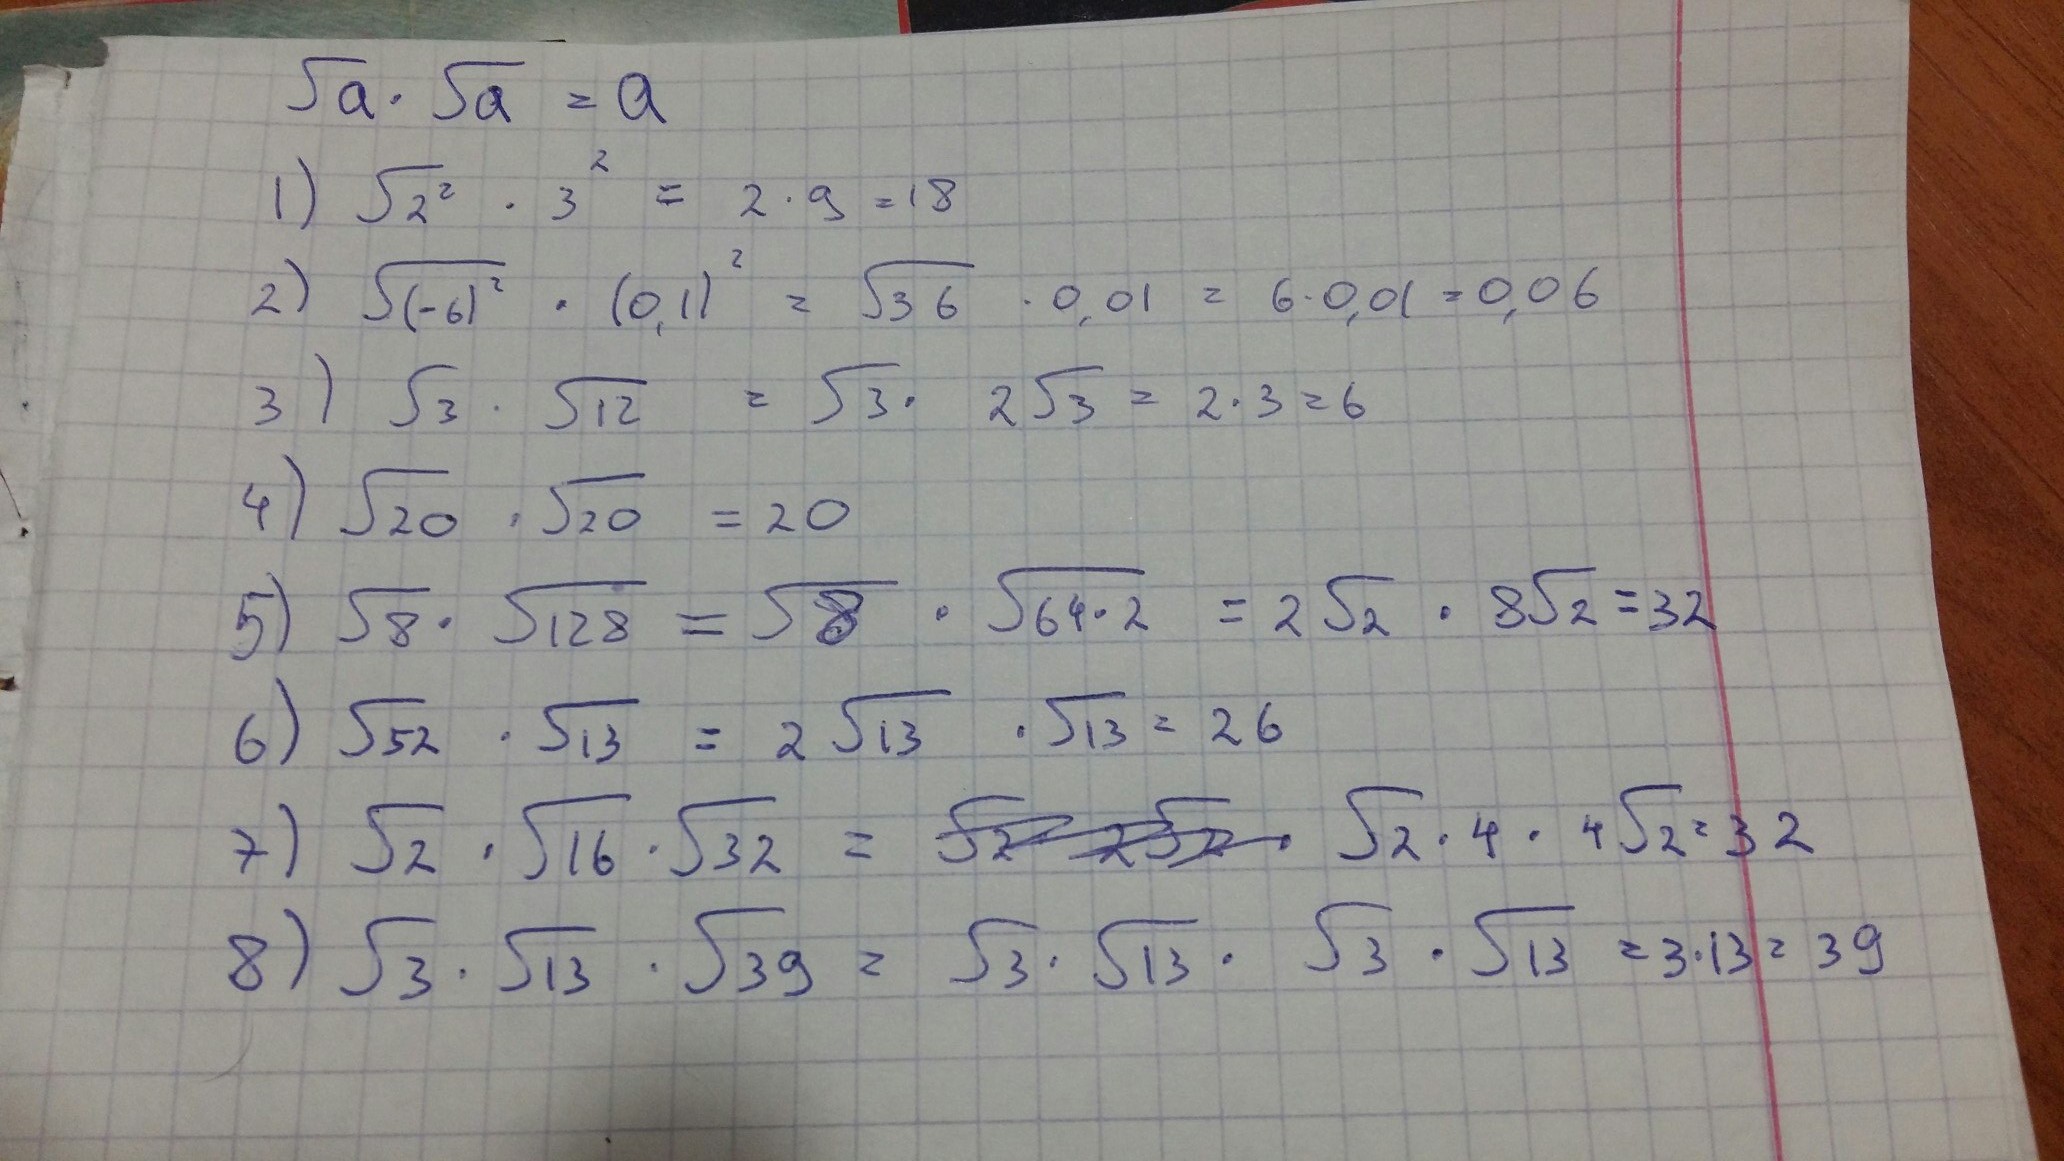 √a · √a = a
1) √2² · 3² = 2 · 9 = 18
2) √(-6)² · (0,1)² = √36 · 0,01 = 6 · 0,01 = 0,06
3) √3 · √12 = √3 · 2√3 = 2 · 3 = 6
4) √20 · √20 = 20
5) √8 · √128 = √8 · √64·2 = 2√2 · 8√2 = 32
6) √52 · √13 = 2√13 · √13 = 26
7) √2 · √16 · √32 = √2 · 2√2 · √2 · 4 · 4√2 = 32
8) √3 · √13 · √39 = √3 · √13 · √3 · √13 = 3·13 = 39